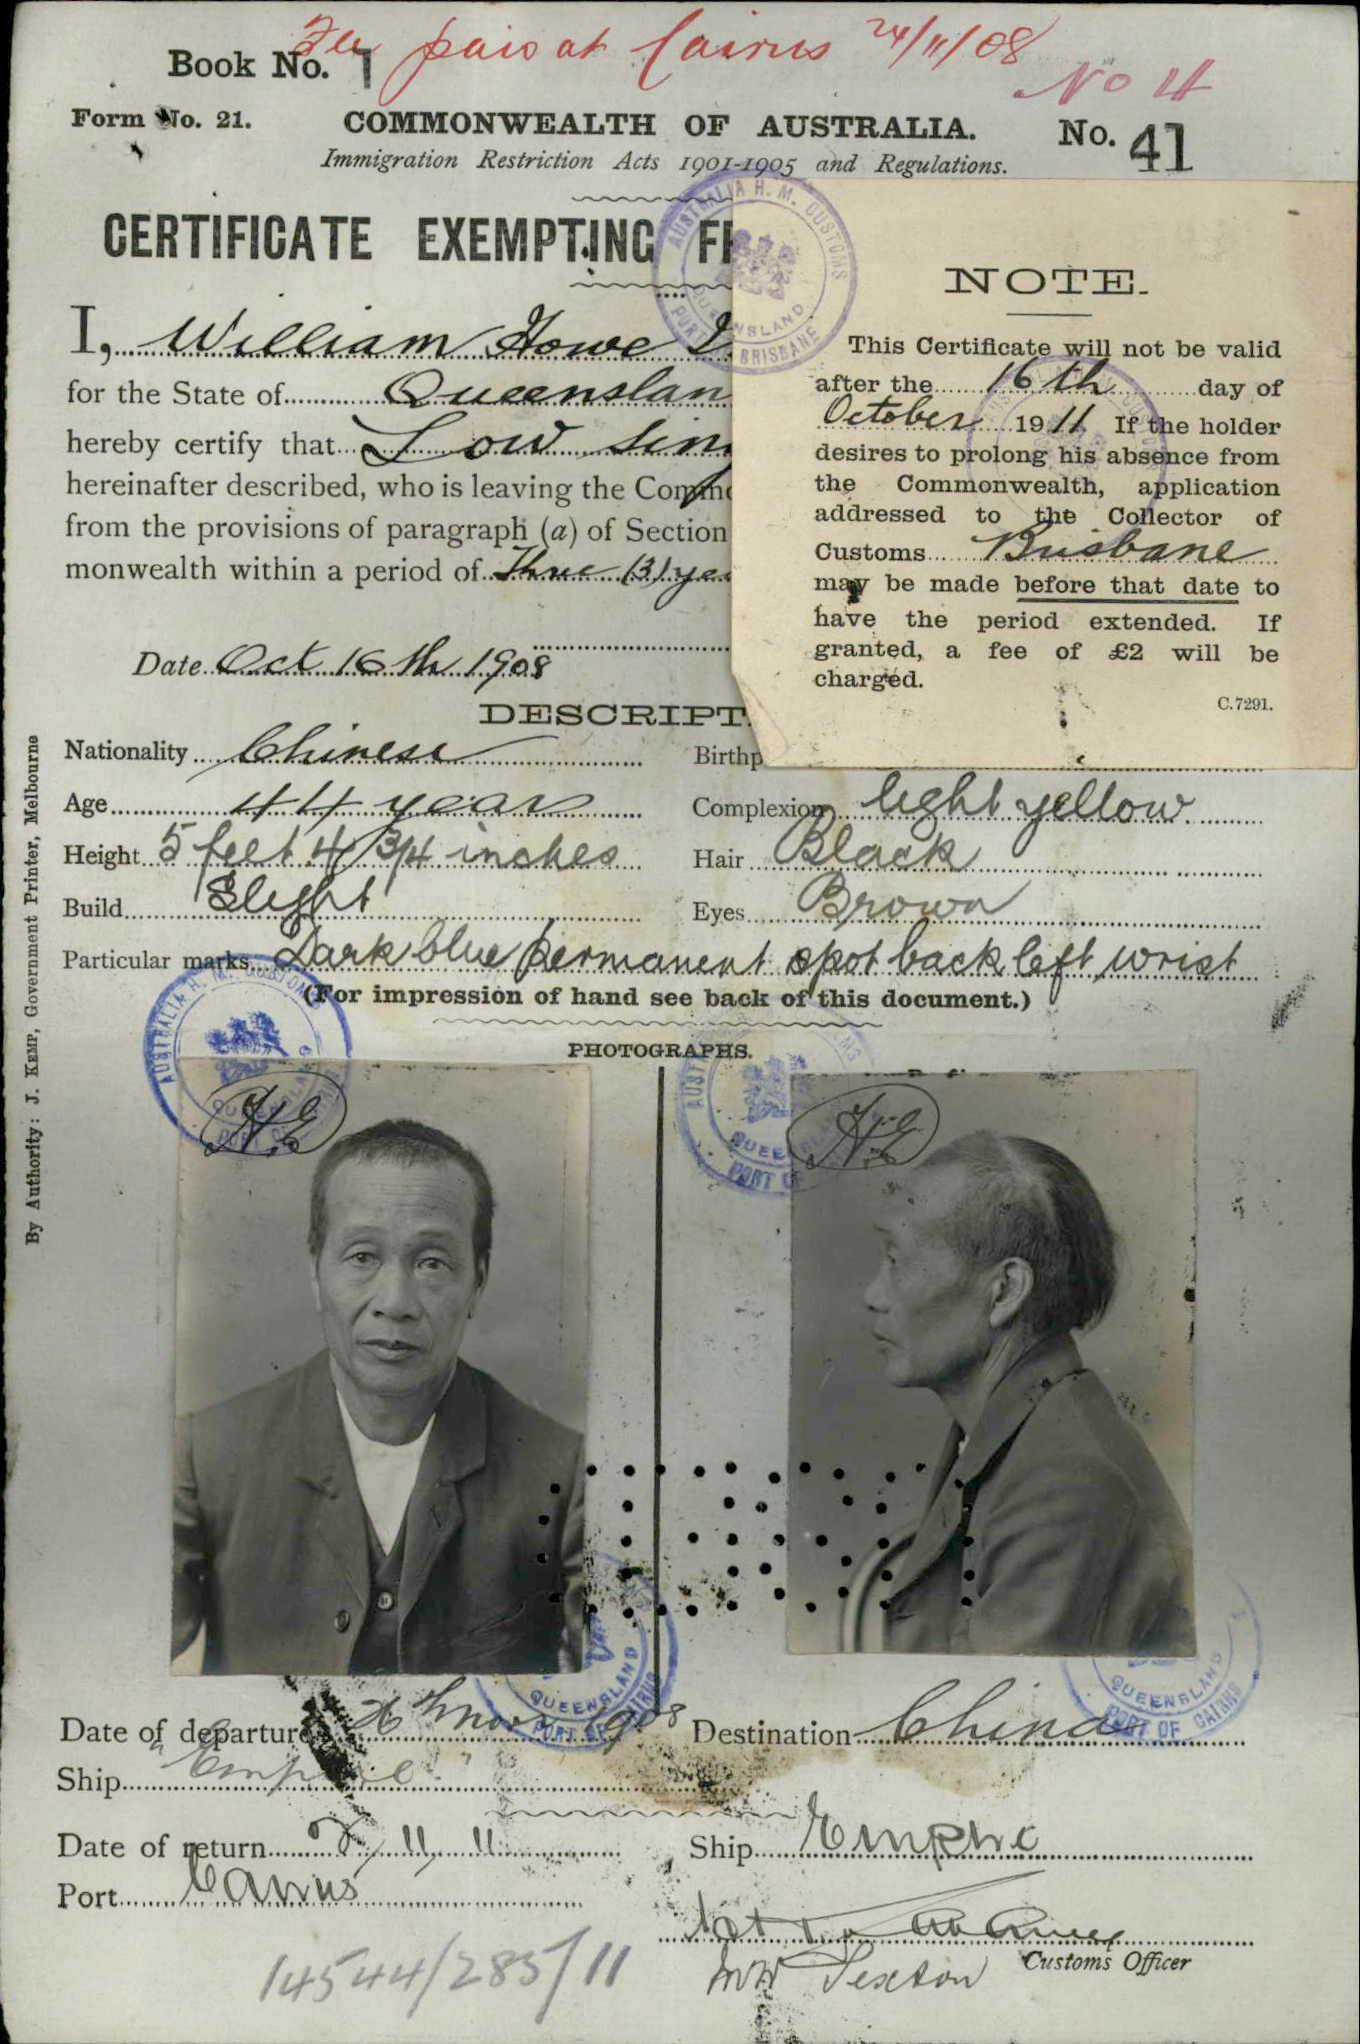 Fee paid at Cairns 24/11/08
Book No. 1
No 4
Form No. 21.
COMMONWEALTH OF AUSTRALIA.
No. 41
Immigration Restriction Acts 1901-1905 and Regulations.
CERTIFICATE EXEMPTING
I, William Howe
for the State of Queenslan
hereby certify that Low Sin
hereinafter described, who is leaving the Com
from the provisions of paragraph (a) of Section
monwealth within a period of Three (3) yea
Date Oct 16th 1908
NOTE.
This Certificate will not be valid
after the 16th day of
October 1911. If the holder
desires to prolong his absence from
the Commonwealth, application
addressed to the Collector of
Customs Brisbane
may be made before that date to
have the period extended. If
granted, a fee of £2 will be
charged.
C.7291.
DESCRIPT
Nationality Chinese
Birthp
Age 44 years
Complexion light yellow.
Height 5 feet 4 3/4 inches
Hair Black
Build Slight
Eyes Brown
Particular marks Dark blue permanent spot back left wrist
(For impression of hand see back of this document.)
PHOTOGRAPHS.
By Authority: J. KEMP, Government Printer, Melbourne
AUSTRALIA H. M. CUSTOMS
QUEENSLAND
PORT BRISBANE
AUSTRALIA H. M. CUSTOMS
QUEENSLAND
PORT OF
H.E
QUEE
PORT OF
H.E
QUEENSLAND
PORT OF CAIRNS
QUEENSLAND
PORT OF CAIRNS
Date of departure 26th Nov 1908
Destination China
Ship "Empire"
Date of return 11, 11
Ship Empire
Port Cairns
Customs Officer
Sexton
14544/285/11